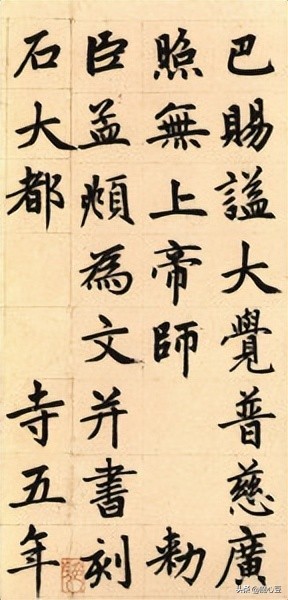 巴賜謚大覺普慈廣
照無上帝師 勅
臣孟頫為文并書刻
石大都 寺五年
头条 @簡心荳